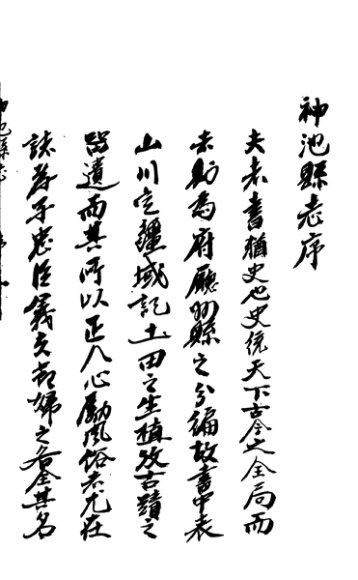 神池縣志序
夫志書猶史也史統天下古今之全局而
志則為府廳州縣之分編故書中表
山川定疆域記土田之生植攷古蹟之
留遺而其所以正人心勵風俗者尤在
誌孝子忠臣義夫節婦之各全其名
神池縣志